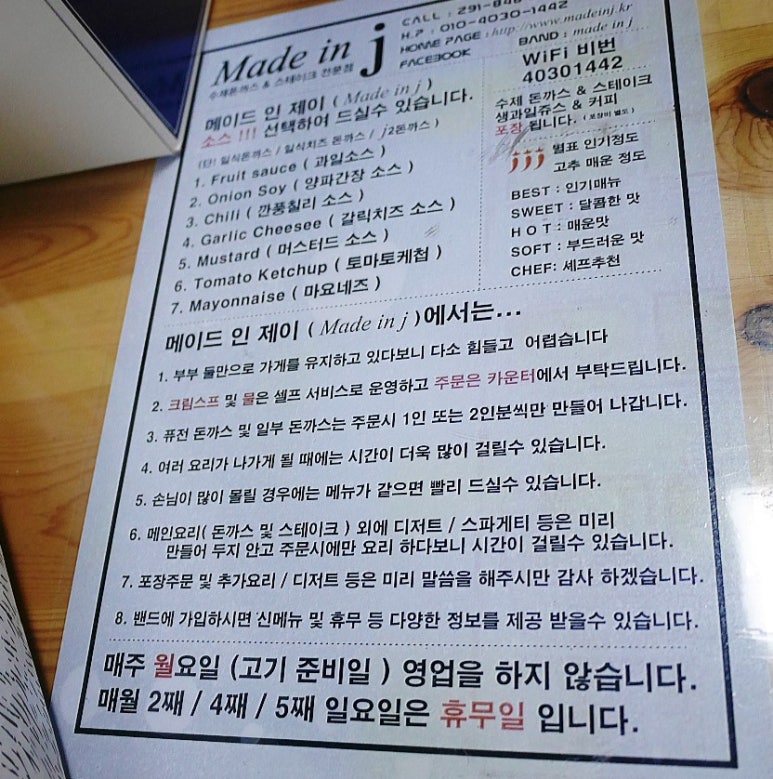 Made in j
수제돈까스 & 스테이크 전문점
CALL : 291-848
H.P : 010-4030-1442
HOME PAGE : http://www.madeinj.kr
FACEBOOK
BAND : made in j
WiFi 비번
40301442
메이드 인 제이 ( Made in j )
소스 !!! 선택하여 드실수 있습니다.
(단! 일식돈까스 / 일식치즈 돈까스 / j2돈까스 )
1. Fruit sauce ( 과일소스 )
2. Onion Soy ( 양파간장 소스 )
3. Chili ( 깐풍칠리 소스 )
4. Garlic Cheesee ( 갈릭치즈 소스 )
5. Mustard ( 머스터드 소스 )
6. Tomato Ketchup ( 토마토케첩 )
7. Mayonnaise ( 마요네즈 )
수제 돈까스 & 스테이크
생과일쥬스 & 커피
포장 됩니다. ( 포장비 별도 )
별표 인기정도
고추 매운 정도
BEST : 인기매뉴
SWEET : 달콤한 맛
H O T : 매운맛
SOFT : 부드러운 맛
CHEF: 셰프추천
메이드 인 제이 ( Made in j )에서는...
1. 부부 둘만으로 가게를 유지하고 있다보니 다소 힘들고 어렵습니다
2. 크림스프 및 물은 셀프 서비스로 운영하고 주문은 카운터에서 부탁드립니다.
3. 퓨전 돈까스 및 일부 돈까스는 주문시 1인 또는 2인분씩만 만들어 나갑니다.
4. 여러 요리가 나가게 될 때에는 시간이 더욱 많이 걸릴수 있습니다.
5. 손님이 많이 몰릴 경우에는 메뉴가 같으면 빨리 드실수 있습니다.
6. 메인요리( 돈까스 및 스테이크 ) 외에 디저트 / 스파게티 등은 미리
만들어 두지 안고 주문시에만 요리 하다보니 시간이 걸릴수 있습니다.
7. 포장주문 및 추가요리 / 디저트 등은 미리 말씀을 해주시만 감사 하겠습니다.
8. 밴드에 가입하시면 신메뉴 및 휴무 등 다양한 정보를 제공 받을수 있습니다.
매주 월요일 (고기 준비일 ) 영업을 하지 않습니다.
매월 2째 / 4째 / 5째 일요일은 휴무일 입니다.